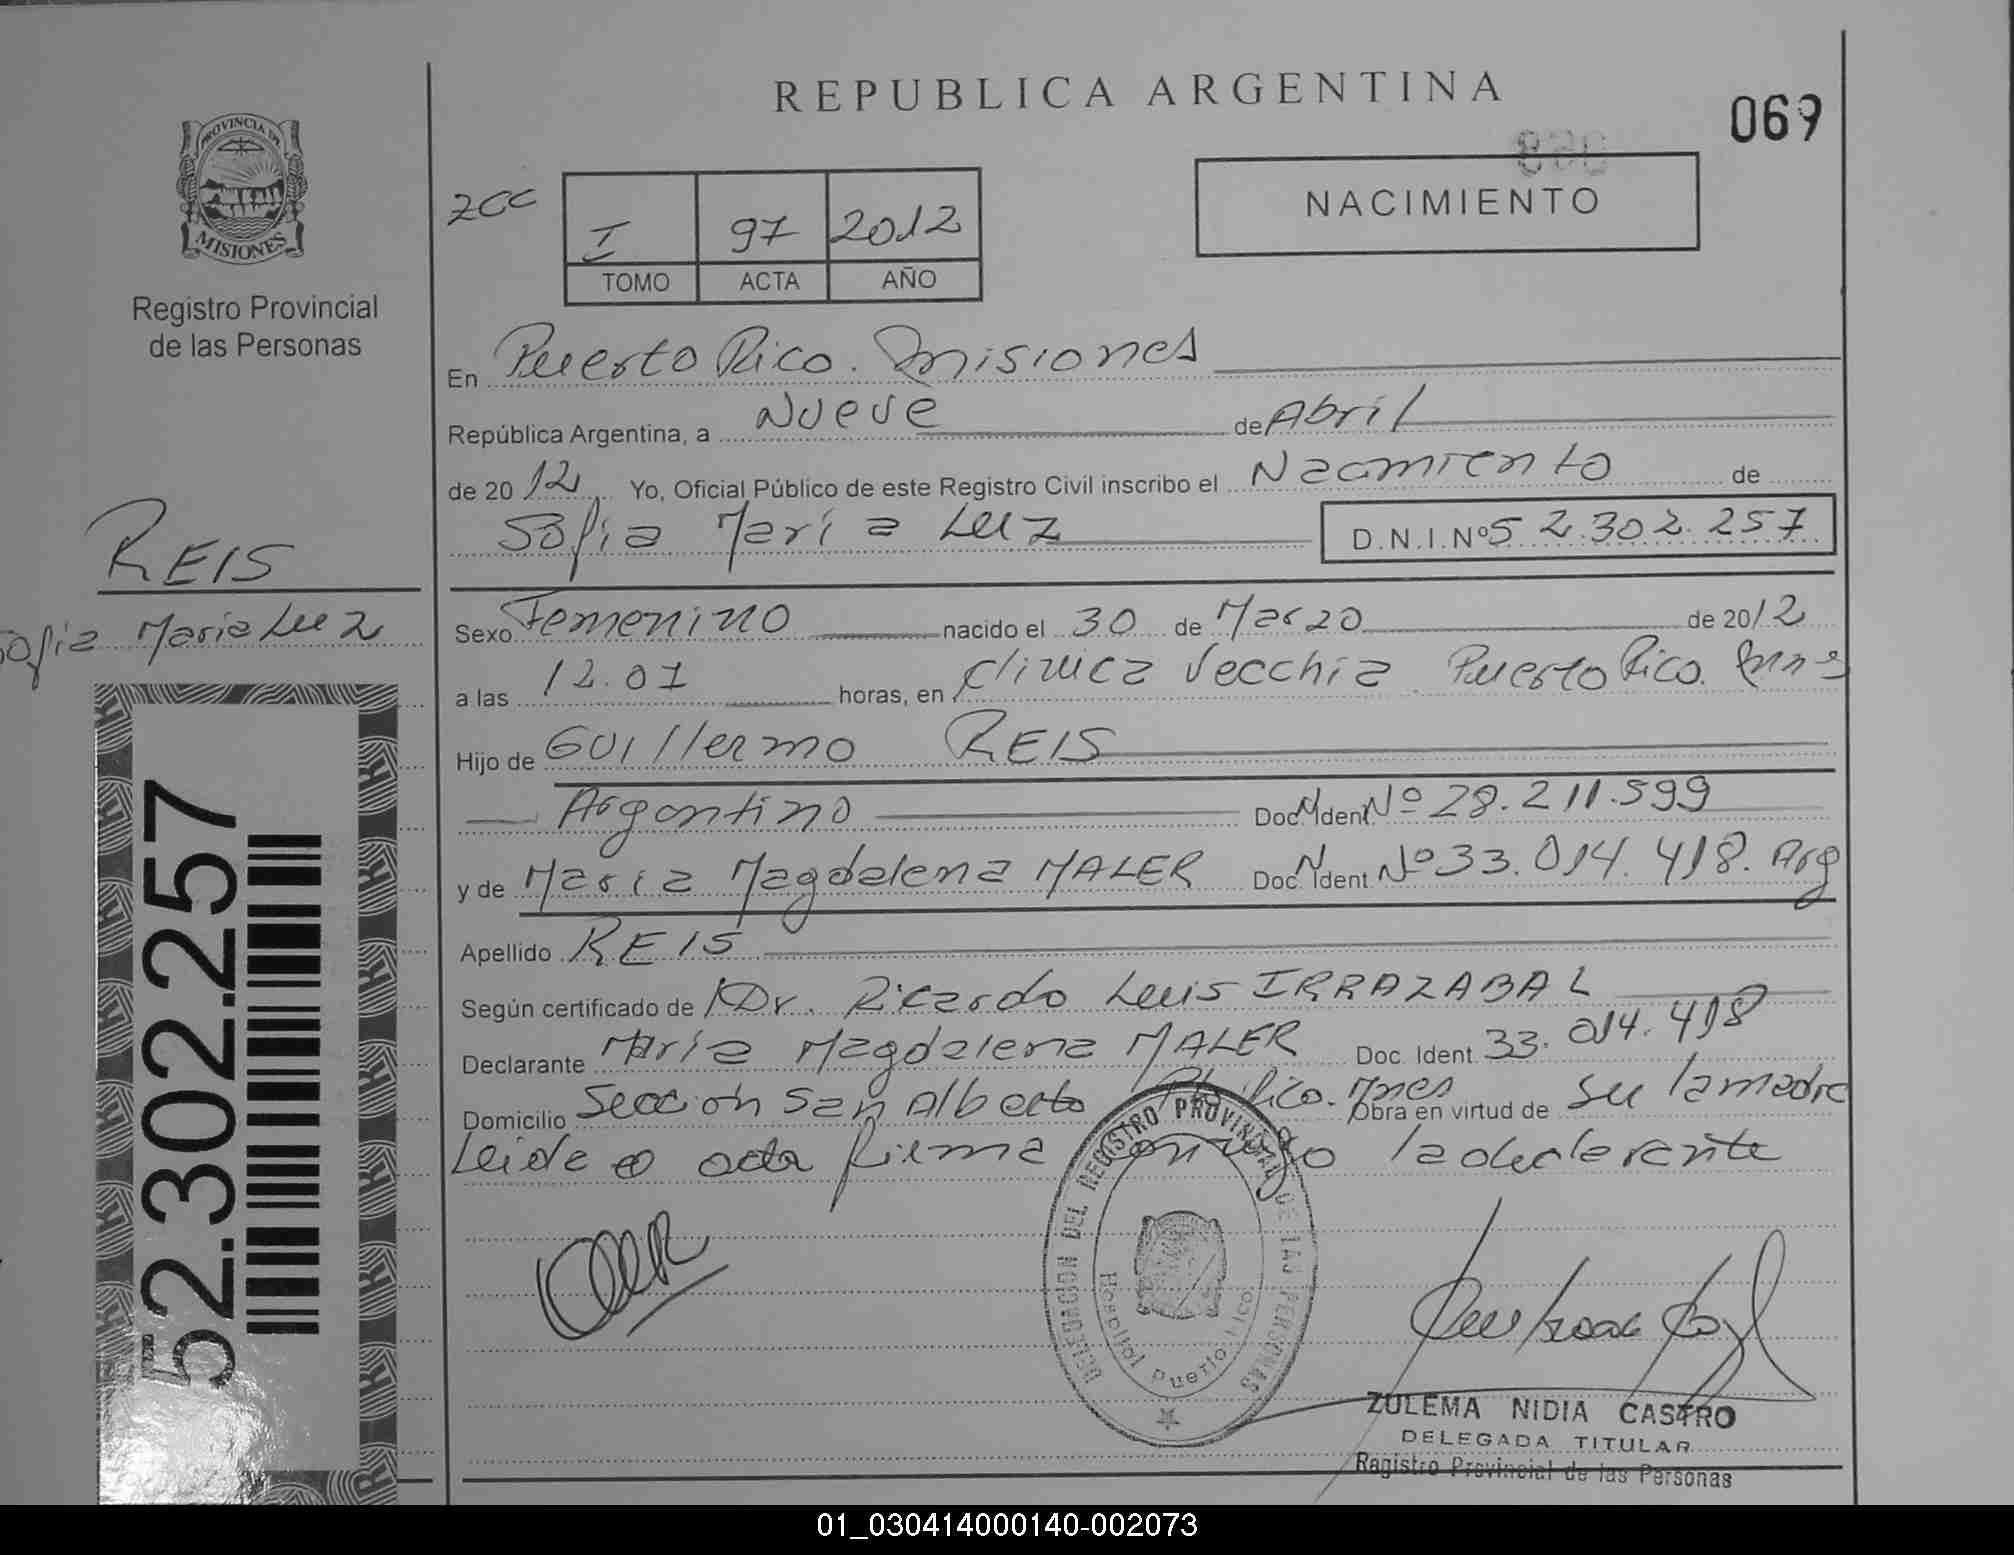 REPUBLICA ARGENTINA
069
068
PROVINCIA DE
MISIONES
Registro Provincial
de las Personas
ZCC
I 97 2012
TOMO ACTA AÑO
NACIMIENTO
En Puerto Rico. Misiones
República Argentina, a Nueve de Abril
de 2012 Yo, Oficial Público de este Registro Civil inscribo el Nacimiento de
Sofia María Luz D.N.I.Nº 52.302.257
REIS
Sofia Maria Luz
52.302.257
Sexo Femenino nacido el 30 de Marzo de 2012
a las 12.01 horas, en Clinica Vecchia Puerto Rico. Mnes
Hijo de Guillermo REIS
Argentino Doc. Ident. Nº 28.211.599
y de Maria Magdalena MALER Doc. Ident Nº 33.014.418. Arg
Apellido REIS
Según certificado de Dr. Ricardo Luis IRRAZABAL
Declarante María Magdalena MALER Doc. Ident. 33.014.418
Domicilio Sección San Alberto Pto Rico. Mnes Obra en virtud de su la madre
Leida el acta firma conmigo la declarante
DELEGACION DEL REGISTRO PROVINCIAL DE LAS PERSONAS
Hospital Puerto Rico
ZULEMA NIDIA CASTRO
DELEGADA TITULAR
Registro Provincial de las Personas
01_030414000140-002073